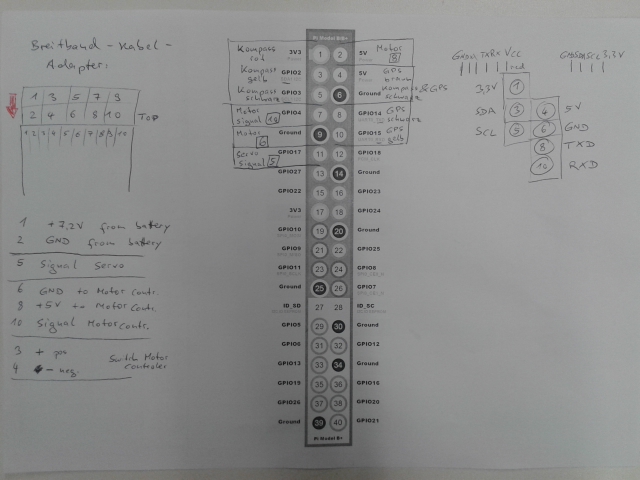 Breitband-Kabel-
Adapter:
1 3 5 7 9
2 4 6 8 10
TOP
1 2 3 4 5 6 7 8 9 10
1 +7,2V from battery
2 GND from battery
5 Signal Servo
6 GND to Motor contr.
8 +5V to Motor contr.
10 Signal Motor contr.
3 + pos
4 - neg.
Switch Motor
Controler
Pi Model B/B+
Kompass rot 3V3 1 2 5V Motor 8
Kompass gelb GPIO2 3 4 5V GPS braun
Kompass schwarz GPIO3 5 6 Kompass & GPS schwarz
Motor Signal 10 GPIO4 7 8 GPIO14 GPS schwarz
Motor 6 Ground 9 10 GPIO15 GPS gelb
Servo Signal 5 GPIO17 11 12 GPIO18
GPIO27 13 14 Ground
GPIO22 15 16 GPIO23
3V3 17 18 GPIO24
GPIO10 19 20 Ground
GPIO9 21 22 GPIO25
GPIO11 23 24 GPIO8
Ground 25 26 GPIO7
ID_SD 27 28 ID_SC
GPIO5 29 30 Ground
GPIO6 31 32 GPIO12
GPIO13 33 34 Ground
GPIO19 35 36 GPIO16
GPIO26 37 38 GPIO20
Ground 39 40 GPIO21
Pi Model B+
GND TX RX VCC
red
GND SDA SCL 3,3V
3,3V 1
SDA 3 4 5V
SCL 5 6 GND
8 TXD
10 RXD